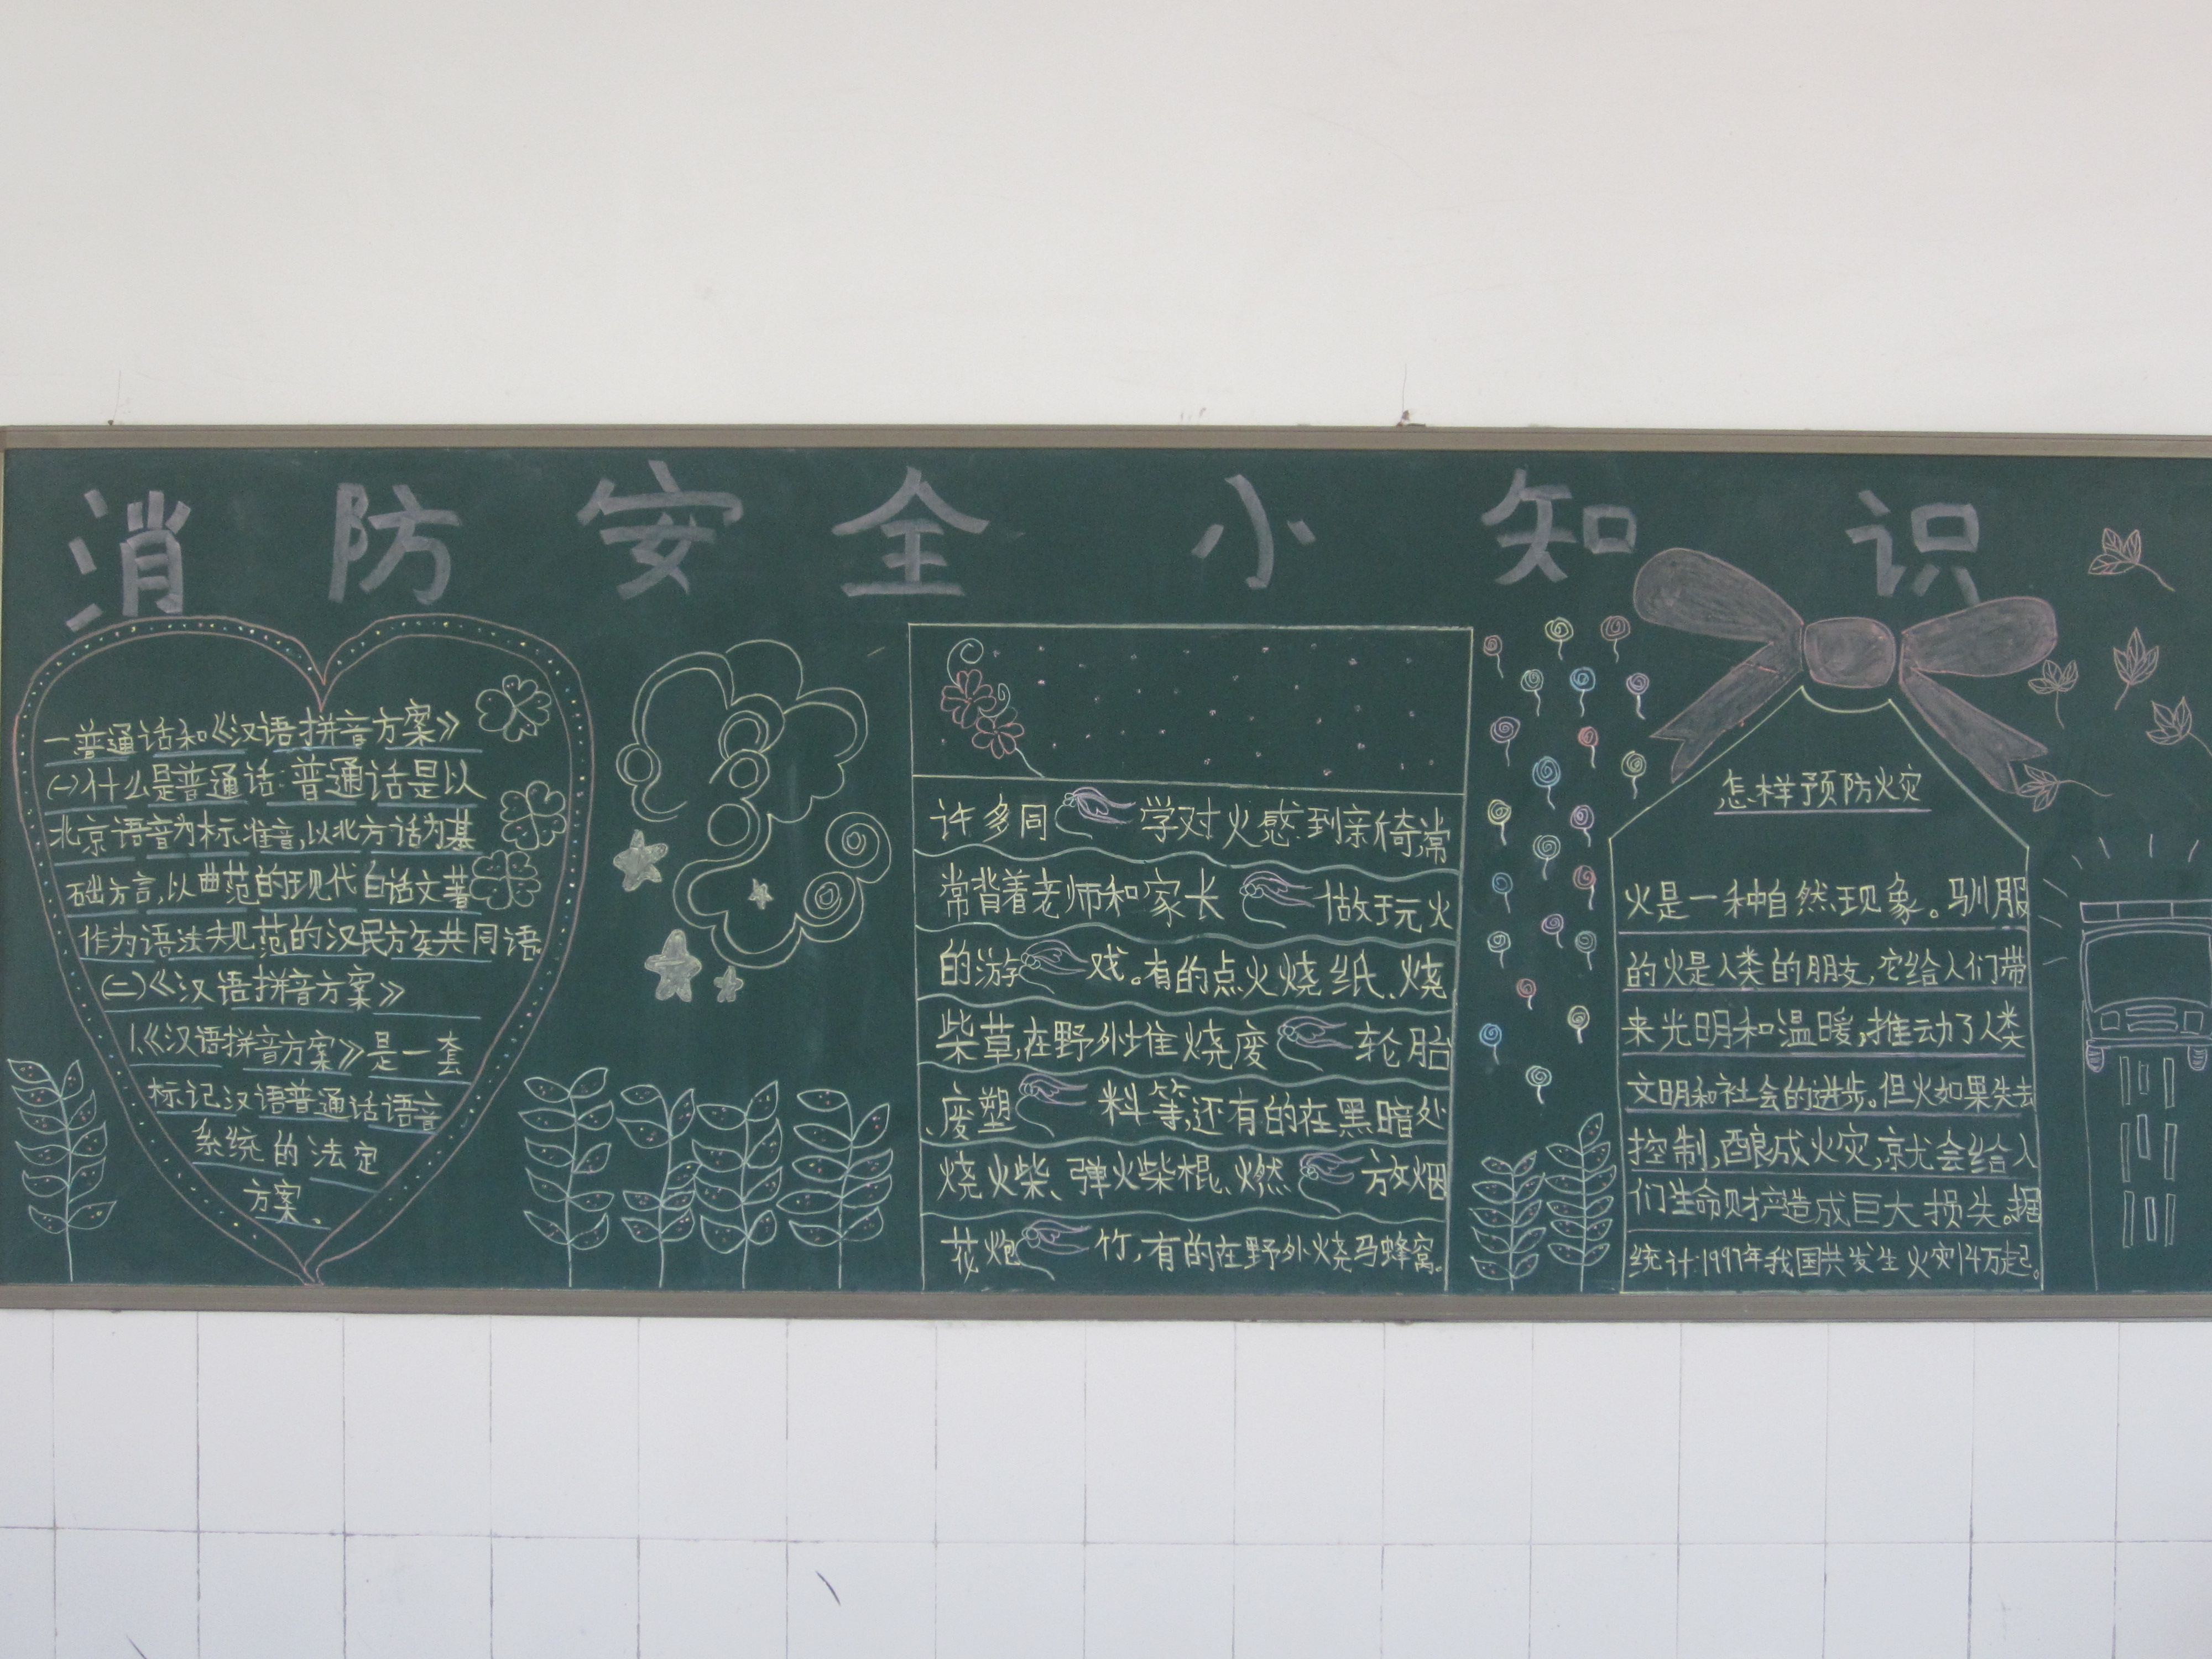 消防安全小知识
一普通话和《汉语拼音方案》
(一)什么是普通话:普通话是以
北京语音为标准音,以北方话为基
础方言,以典范的现代白话文著
作为语法规范的汉民族共同语。
(二)《汉语拼音方案》
1.《汉语拼音方案》是一套
标记汉语普通话语音
系统的法定
方案、
许多同学对火感到亲倚,常
常背着老师和家长做于玩火
的游戏。有的点火烧纸、烧
柴草,在野外堆烧废轮胎
、废塑料等,还有的在黑暗处
烧火柴、弹火柴棍、燃放烟
花炮竹,有的在野外烧马蜂窝。
怎样预防火灾
火是一种自然现象。驯服
的火是人类的朋友,它给人们带
来光明和温暖,推动了人类
文明和社会的进步。但火如果失去
控制,酿成火灾,就会给人
们生命财产造成巨大损失。据
统计:1997年我国共发生火灾14万起。